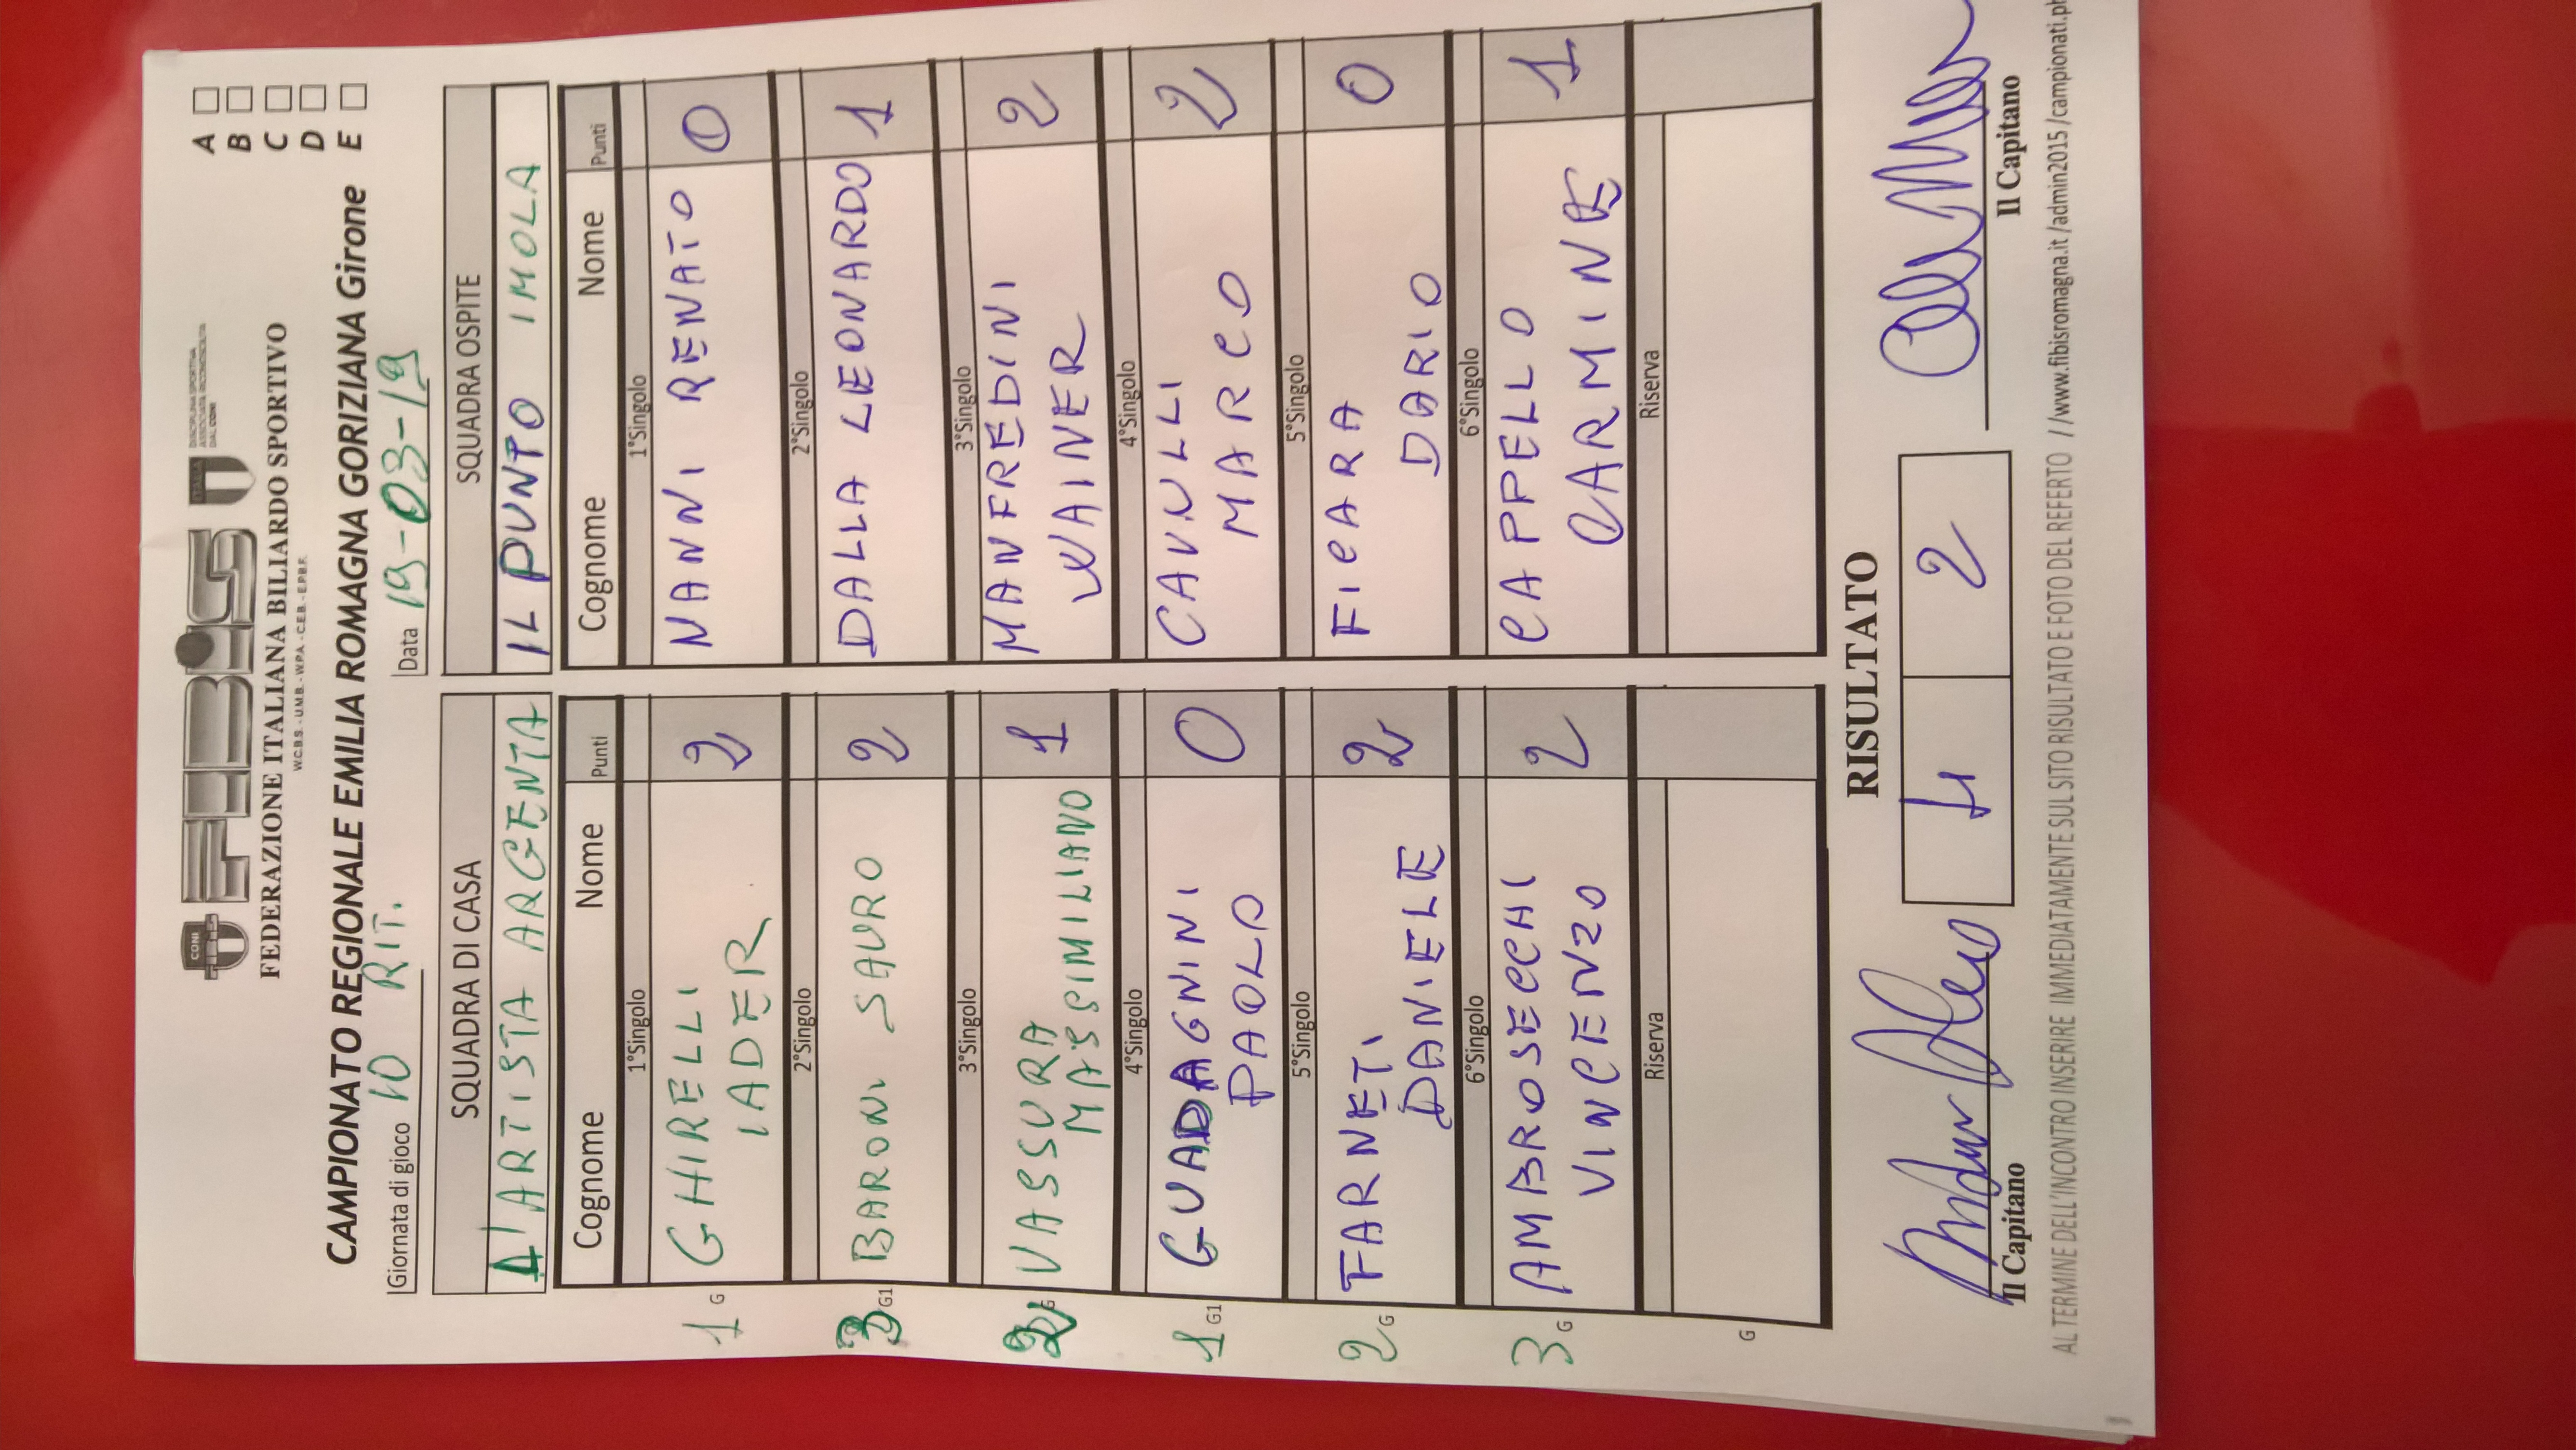 CONI
FIBiS
ITALIA
DISCIPLINA SPORTIVA
ASSOCIATA RICONOSCIUTA
DAL CONI
FEDERAZIONE ITALIANA BILIARDO SPORTIVO
W.C.B.S. - U.M.B. - W.P.A. - C.E.B. - E.P.B.F.
CAMPIONATO REGIONALE EMILIA ROMAGNA GORIZIANA Girone
A
B
C
D
E
Giornata di gioco 10 RIT.
Data 19-03-19
SQUADRA DI CASA
SQUADRA OSPITE
L'ARTISTA ARGENTA
IL PUNTO IMOLA
Cognome Nome Punti
Cognome Nome Punti
1°Singolo
1°Singolo
1 G GHIRELLI IADER 2
NANNI RENATO 0
2°Singolo
2°Singolo
3 G1 BARONI SAURO 2
DALLA LEONARDO 1
3°Singolo
3°Singolo
2 G VASSURA MASSIMILIANO 1
MANFREDINI WAINER 2
4°Singolo
4°Singolo
1 G1 GUADAGNINI PAOLO 0
CAVULLI MARCO 2
5°Singolo
5°Singolo
2 G FARNETI DANIELE 2
FICARA DARIO 0
6°Singolo
6°Singolo
3 G AMBROSECCHI VINCENZO 2
CAPPELLO CARMINE 1
Riserva
Riserva
G
RISULTATO
4 2
Il Capitano
Il Capitano
AL TERMINE DELL'INCONTRO INSERIRE IMMEDIATAMENTE SUL SITO RISULTATO E FOTO DEL REFERTO //www.fibisromagna.it/admin2015/campionati.ph